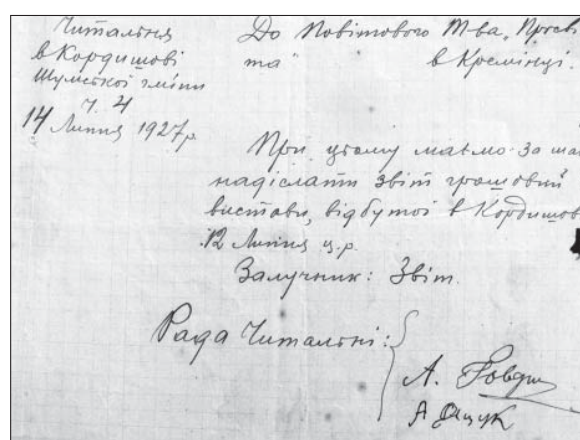 Читальня
в Кордишові
Шумської гміни
ч. 4
14 Липня 1927р.
До Повітового Т-ва „Просві
та" в Кремінці.
При цьому маємо за
надіслати звіт грошовий
вистави, відбутої в Кордишов
12 Липня ц.р.
Залучник: Звіт.
Рада Читальні:
А.
А